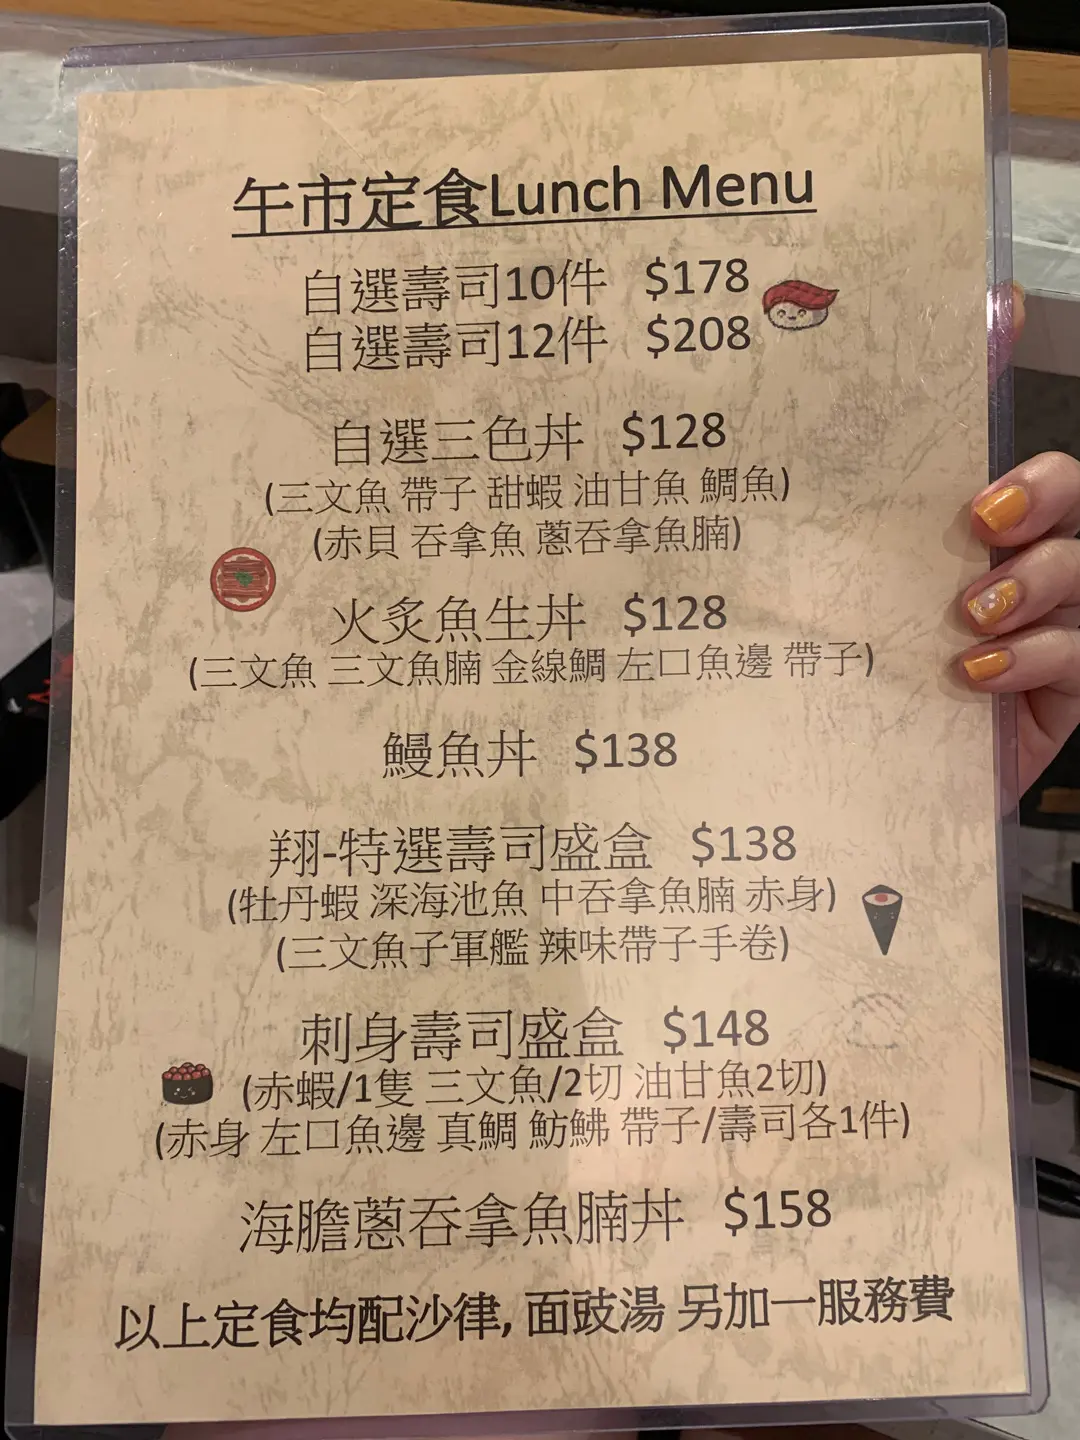 午市定食Lunch Menu
自選壽司10件 $178
自選壽司12件 $208
自選三色丼 $128
(三文魚 帶子 甜蝦 油甘魚 鯛魚)
(赤貝 吞拿魚 蔥吞拿魚腩)
火炙魚生丼 $128
(三文魚 三文魚腩 金線鯛 左口魚邊 帶子)
鰻魚丼 $138
翔-特選壽司盛盒 $138
(牡丹蝦 深海池魚 中吞拿魚腩 赤身)
(三文魚子軍艦 辣味帶子手卷)
刺身壽司盛盒 $148
(赤蝦/1隻 三文魚/2切 油甘魚2切)
(赤身 左口魚邊 真鯛 魴鮄 帶子/壽司各1件)
海膽蔥吞拿魚腩丼 $158
以上定食均配沙律, 面豉湯 另加一服務費